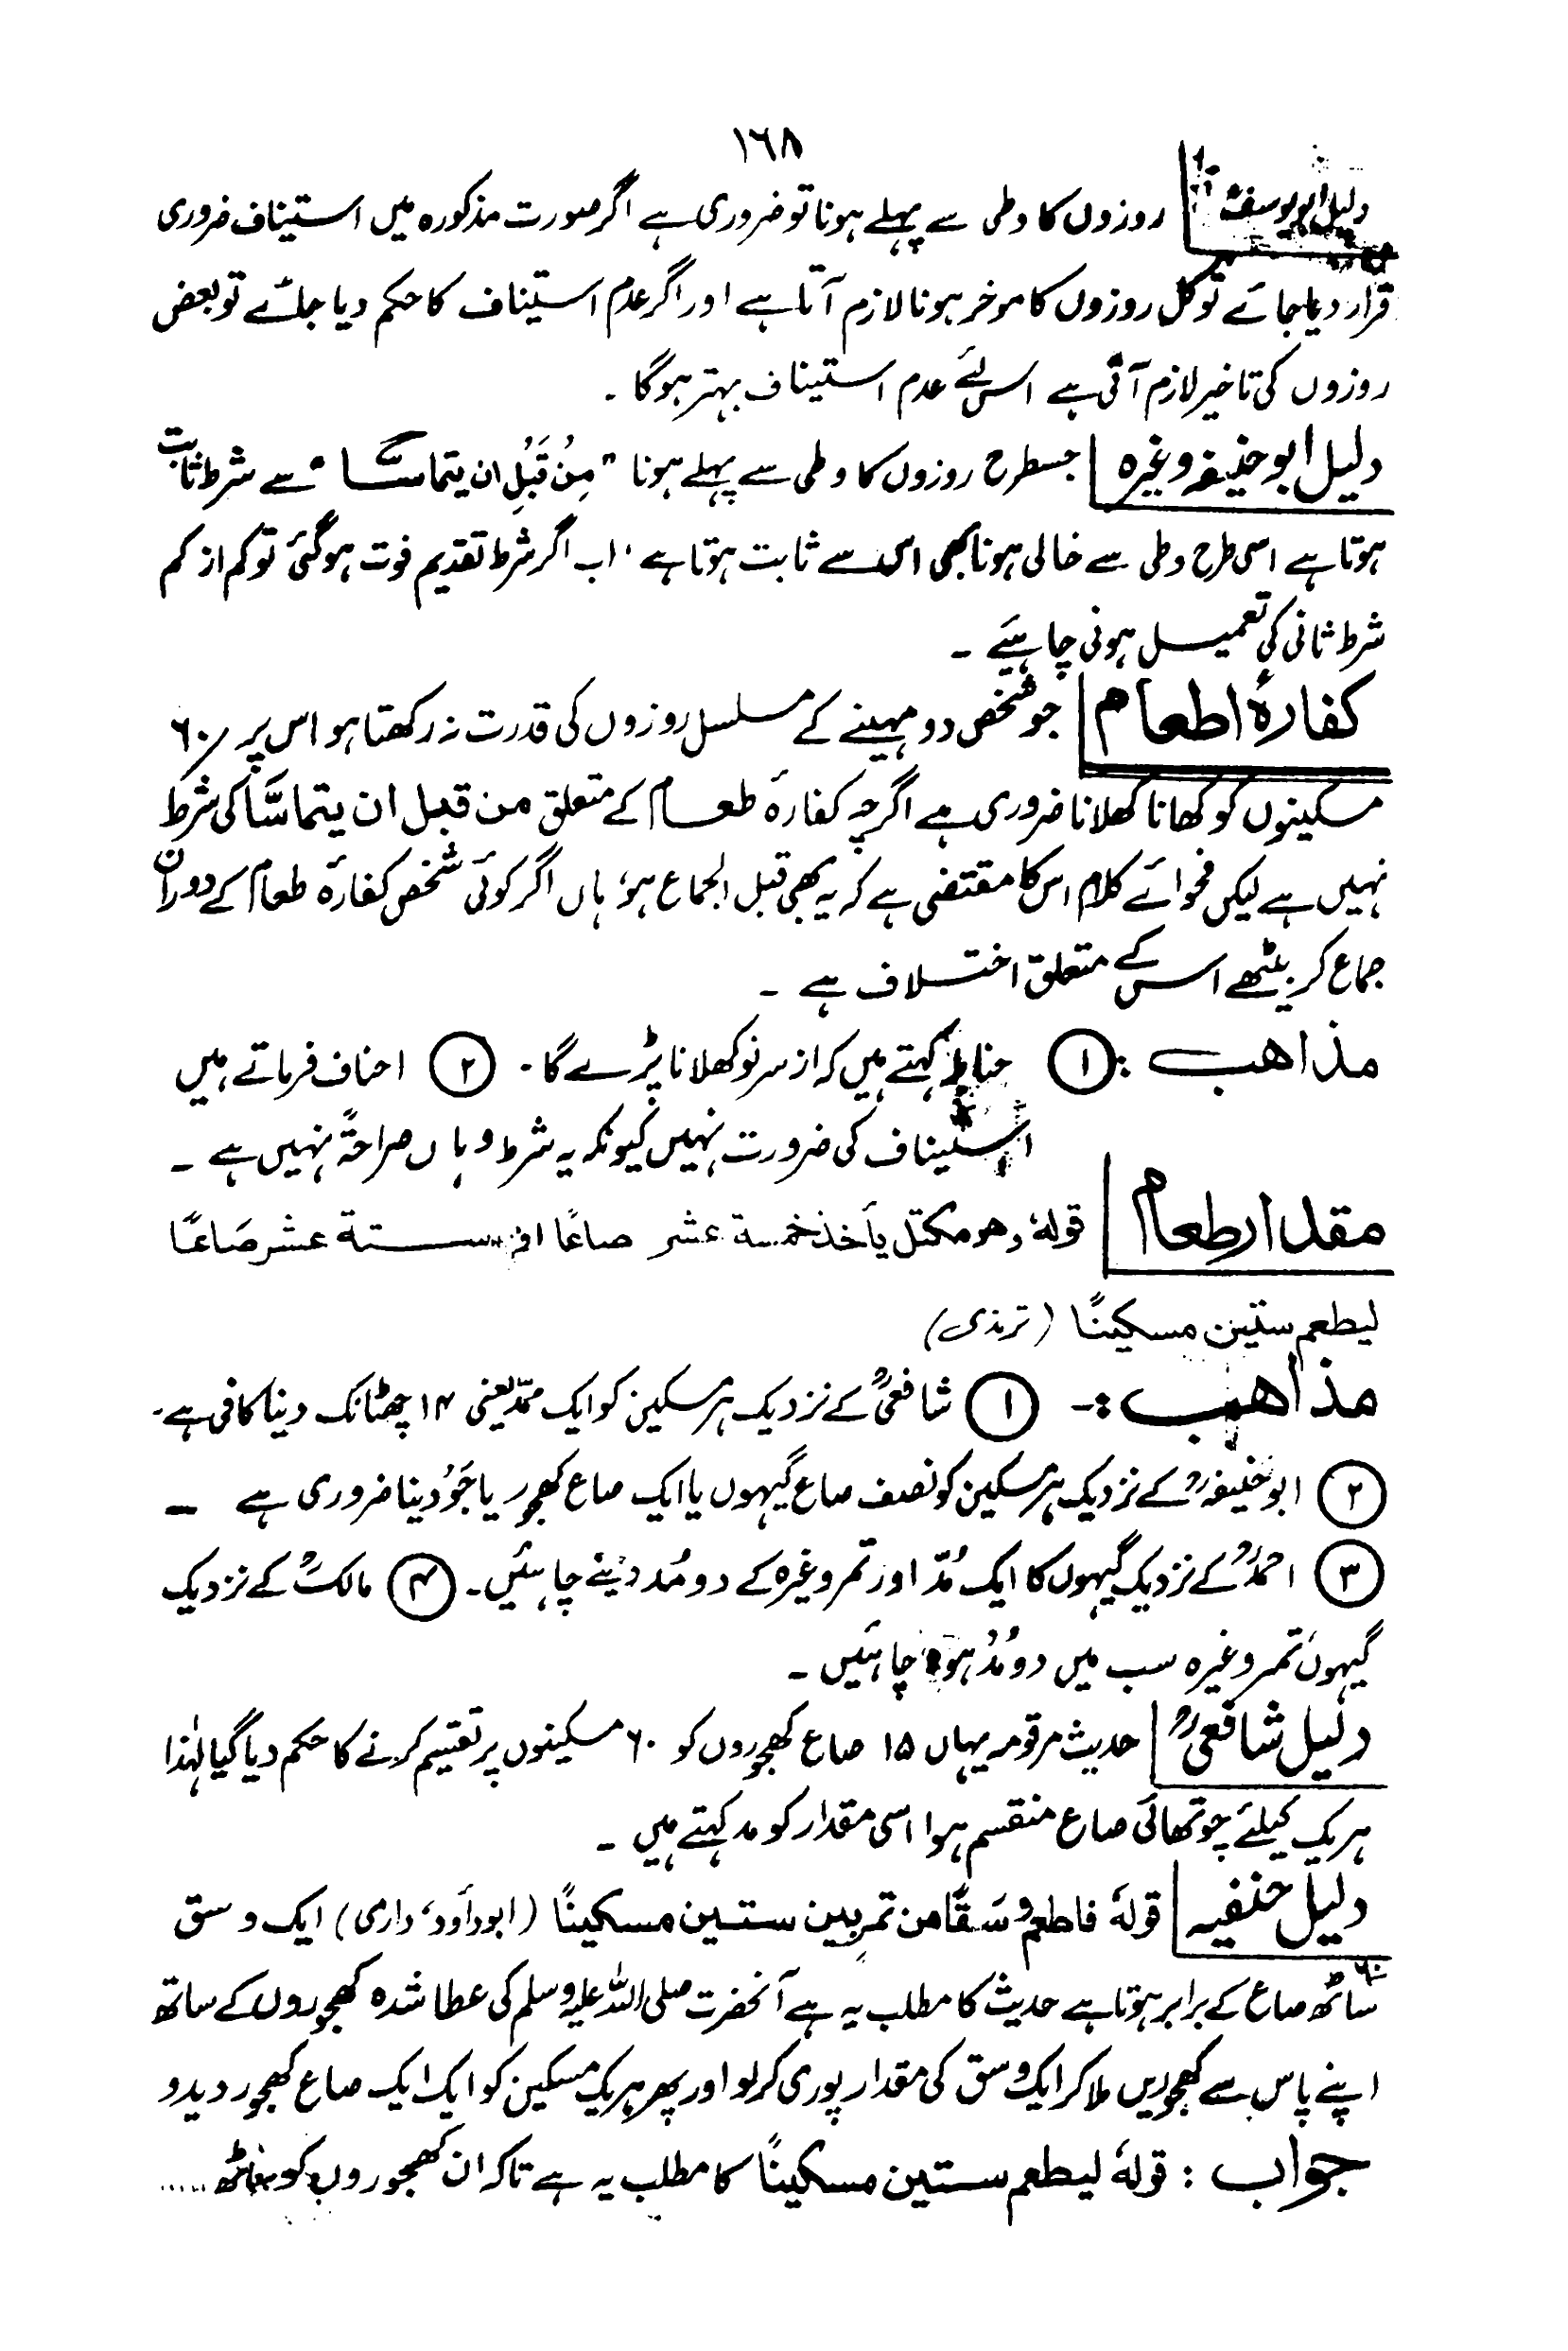 ١٦٨
دلیل ابو یوسفؒ روزوں کا وطی سے پہلے ہونا تو ضروری ہے اگر صورت مذکورہ میں استیناف ضروری
قرار دیا جائے تو کل روزوں کا موخر ہونا لازم آتا ہے اور اگر عدم استیناف کا حکم دیا جائے تو بعض
روزوں کی تاخیر لازم آتی ہے اس لئے عدم استیناف بہتر ہوگا ۔
دلیل ابو حنیفہ وغیرہ جسطرح روزوں کا وطی سے پہلے ہونا "مِنْ قَبْلِ ان یتماسّا" سے شرط ثابت
ہوتا ہے اسی طرح وطی سے خالی ہونا بھی اس سے ثابت ہوتا ہے، اب اگر شرط تقدیم فوت ہوگئی تو کم از کم
شرط ثانی کی تعمیل ہونی چاہیئے ۔
کفارۂ اطعام جو شخص دو مہینے کے مسلسل روزوں کی قدرت نہ رکھتا ہو اس پر /٦٠
مسکینوں کو کھانا کھلانا ضروری ہے اگرچہ کفارۂ طعام کے متعلق من قبل ان یتماسَّا کی شرط
نہیں ہے لیکن فحوائے کلام اس کا مقتضی ہے کہ یہ بھی قبل الجماع ہو، ہاں اگر کوئی شخص کفارۂ طعام کے دوران
جماع کر بیٹھے اس کے متعلق اختلاف ہے ۔
مذاھب : ① حنابلہ کہتے ہیں کہ از سر نو کھلانا پڑے گا ۔ ② احناف فرماتے ہیں
استیناف کی ضرورت نہیں کیونکہ یہ شرط وہاں صراحۃً نہیں ہے ۔
مقدار طعام قولہٗ وھو مکتل یأخذ خمسة عشر صاعًا او ستة عشر صَاعًا
لیطعم ستین مسکینًا (ترمذی)
مذاھب :- ① شافعیؒ کے نزدیک ہر مسکین کو ایک مُدّ یعنی ۱۴ چھٹانک دینا کافی ہے ۔
② ابو حنیفہؒ کے نزدیک ہر مسکین کو نصف صاع گیہوں یا ایک صاع کھجور یا جَو دینا ضروری ہے ۔
③ احمدؒ کے نزدیک گیہوں کا ایک مُدّ اور تمر وغیرہ کے دو مُد دینے چاہئیں ۔ ④ مالکؒ کے نزدیک
گیہوں، تمر وغیرہ سب میں دو مُدْ ہونا چاہئیں ۔
دلیل شافعیؒ حدیث مرقومہ یہاں ۱۵ صاع کھجوروں کو ٦٠ مسکینوں پر تقسیم کرنے کا حکم دیا گیا لہٰذا
ہر یک کیلئے چوتھائی صاع منقسم ہوا اسی مقدار کو مد کہتے ہیں ۔
دلیل حنفیہ قولہٗ فاطعم وسَقًا من تمرٍ بین ستین مسکینًا (ابوداؤد، دارمی) ایک وسق
ساٹھ ٦٠ صاع کے برابر ہوتا ہے حدیث کا مطلب یہ ہے آنحضرت صلی اللہ علیہ وسلم کی عطا شدہ کھجوروں کے ساتھ
اپنے پاس سے کھجوریں ملا کر ایک وسق کی مقدار پوری کرلو اور پھر ہر یک مسکین کو ایک ایک صاع کھجور دیدو
جواب : قولہٗ لیطعم ستین مسکینًا کا مطلب یہ ہے تاکہ ان کھجوروں کو ساٹھ .....